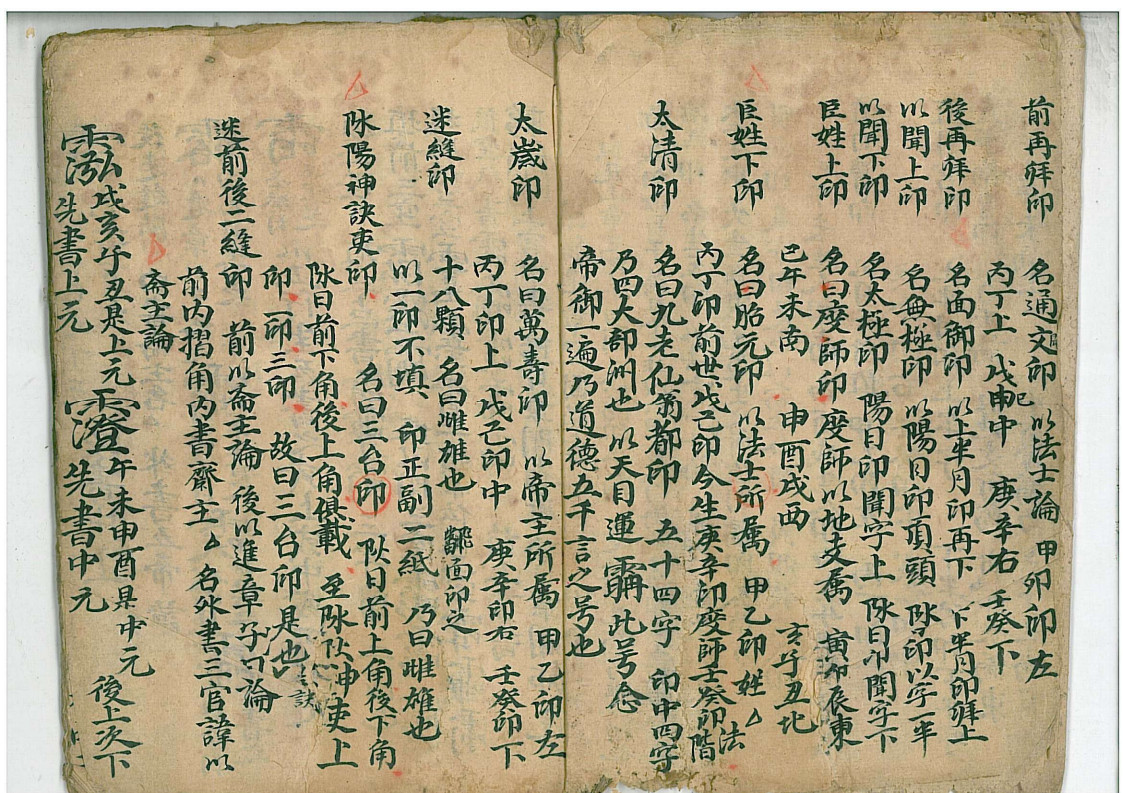 前再拜印 名通交印 以法士論 甲夘印左
丙丁上 戊申巳中 庚辛右 壬癸下
後再拜印 名面御印 以上半月印再下 下半月印拜上
以聞上印 名無極印 以陽日印頂頭 阥日印以字一半
以聞下印 名太極印 陽日印聞字上 阥日印聞字下
臣姓上印 名曰度師印 度師以地支属 寅夘辰東
巳午未南 申酉戌西 亥子丑北
臣姓下印 名曰胎元印 以法士所属 甲乙印姓 法
丙丁印前世 戊己印今生 庚辛印度師 壬癸印階
太清印 名曰九老仙翁都印 五十四字 印中四字
乃四大部洲也 以天目運 此号念
帝御一遍乃道德五千言之号也
太歲印 名曰萬壽印 以帝主所属 甲乙印左
丙丁印上 戊己印中 庚辛印右 壬癸印下
迷縫印 十八顆 名曰雌雄也 鄒面印之
以一印不填 印正副二紙 乃曰雌雄也
阥陽神訣吏印 名曰三台印 阦日前上角後下角
阥日前下角後上角俱載 至阥阦神吏上
印一印三印 故曰三台印是也
迷前後二縫印 前以斎主論 後以進章子口論
前内摺角内書齋主 名外書三官諱以
斎主論
戌亥子丑是上元 午未申酉是中元 後上次下
先書上元 先書中元